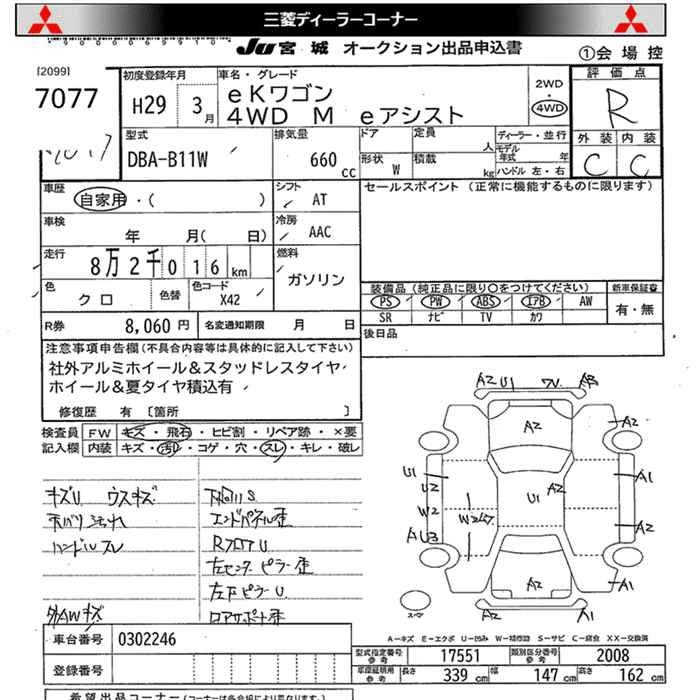 三菱ディーラーコーナー
JU 宮城 オークション出品申込書
①会場控
[2099]
7077
初度登録年月
H29 3月
車名・グレード
eKワゴン
4WD M eアシスト
2WD
・
4WD
評価点
R
外装 内装
C C
型式
DBA-B11W
排気量
660 cc
ドア
定員
人
形状
W
積載
kg
ディーラー・並行
モデル年式 年
ハンドル 左・右
車歴
自家用・( )
シフト
AT
セールスポイント (正常に機能するものに限ります)
車検
年 月( 日)
冷房
AAC
走行
8万2千016km
燃料
ガソリン
色
クロ
色替
色コード
X42
装備品(純正品に限り○をつけてください)
新車保証書
PS PW ABS エアB AW
SR ナビ TV カワ
有・無
R券
8,060円
名変通知期限 月 日
後日品
注意事項申告欄(不具合内容等は具体的に記入して下さい)
社外アルミホイール&スタッドレスタイヤ
ホイール&夏タイヤ積込有
修復歴 有 [箇所 ]
検査員
記入欄
FW キズ・飛石・ヒビ割・リペア跡・×要
内装 キズ・汚れ・コゲ・穴・スレ・キレ・破レ
キズU ウスキズ
天バリ汚れ
ハンドルスレ
外AWキズ
下廻りS
エンドパネル歪
RフロアU
左センターピラー歪
左下ピラーU
ロアサポート歪
A2 U1
A2
A2
U1
U2
W2
AU3
A1
U1 A2
A2
A2
A1
A2 A1
スペア
A-キズ E-エクボ U-凹み W-補修跡 S-サビ C-腐食 XX-交換済
車台番号 0302246
登録番号
型式指定番号 参考 17551
類別区分番号 参考 2008
車庫証明用 参考
長さ 339 cm
幅 147 cm
高さ 162 cm
希望出品コーナー